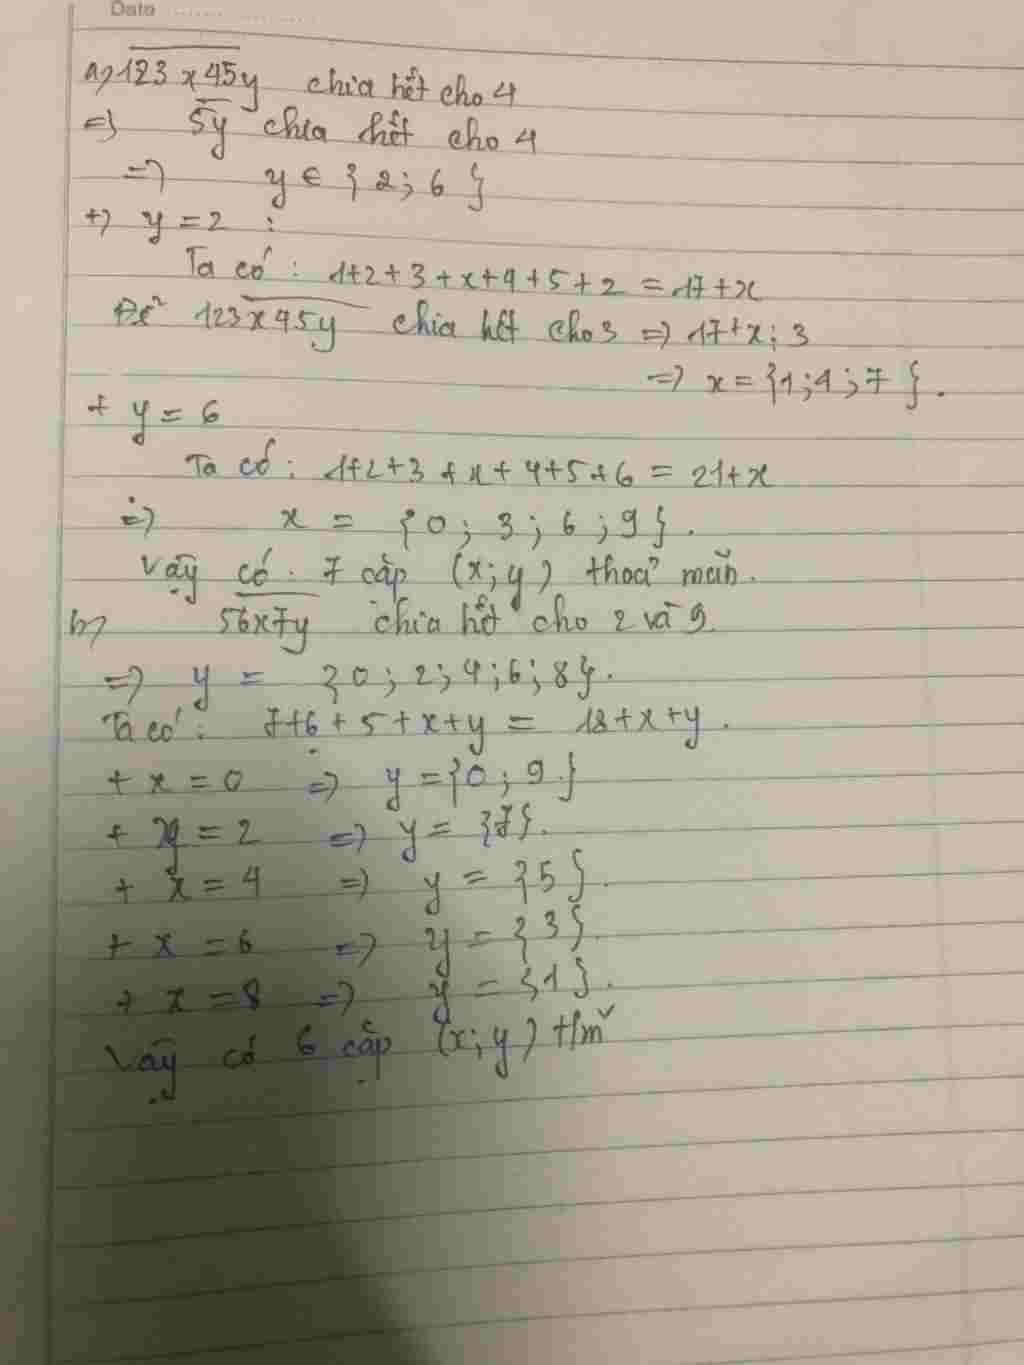 Date
a) 123x45y chia hết cho 4
=> 5y chia hết cho 4
=> y ∈ {2; 6}
+) y = 2 :
Ta có : 1+2+3+x+4+5+2 = 17+x
Để 123x45y chia hết cho 3 => 17+x ⋮ 3
=> x = {1;4;7}.
+ y = 6
Ta có : 1+2+3+x+4+5+6 = 21+x
=> x = {0; 3; 6; 9}.
Vậy có 7 cặp (x;y) thoả mãn.
b) 56x7y chia hết cho 2 và 9.
=> y = {0; 2; 4; 6; 8}.
Ta có : 7+6+5+x+y = 18+x+y.
+ x = 0 => y = {0; 9}
+ x = 2 => y = {7}.
+ x = 4 => y = {5}.
+ x = 6 => y = {3}.
+ x = 8 => y = {1}.
Vậy có 6 cặp (x;y) t/m